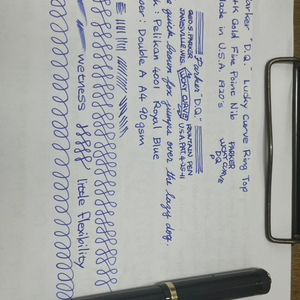 Parker "D.Q." - Lucky Curve Ring Top
14K Gold Fine Point Nib
Made in U.S.A. 1920's
PARKER
LUCKY CURVE
D.Q.
Parker "D.Q."
GEO. S. PARKER FOUNTAIN PEN
JANESVILLE WIS. LUCKY CURVE U.S.A. PAT. 4-25-11
quick brown fox jumps over the lazy dog.
: Pelikan 4001 Royal Blue
: Double A A4 90gsm
wetness little flexibility